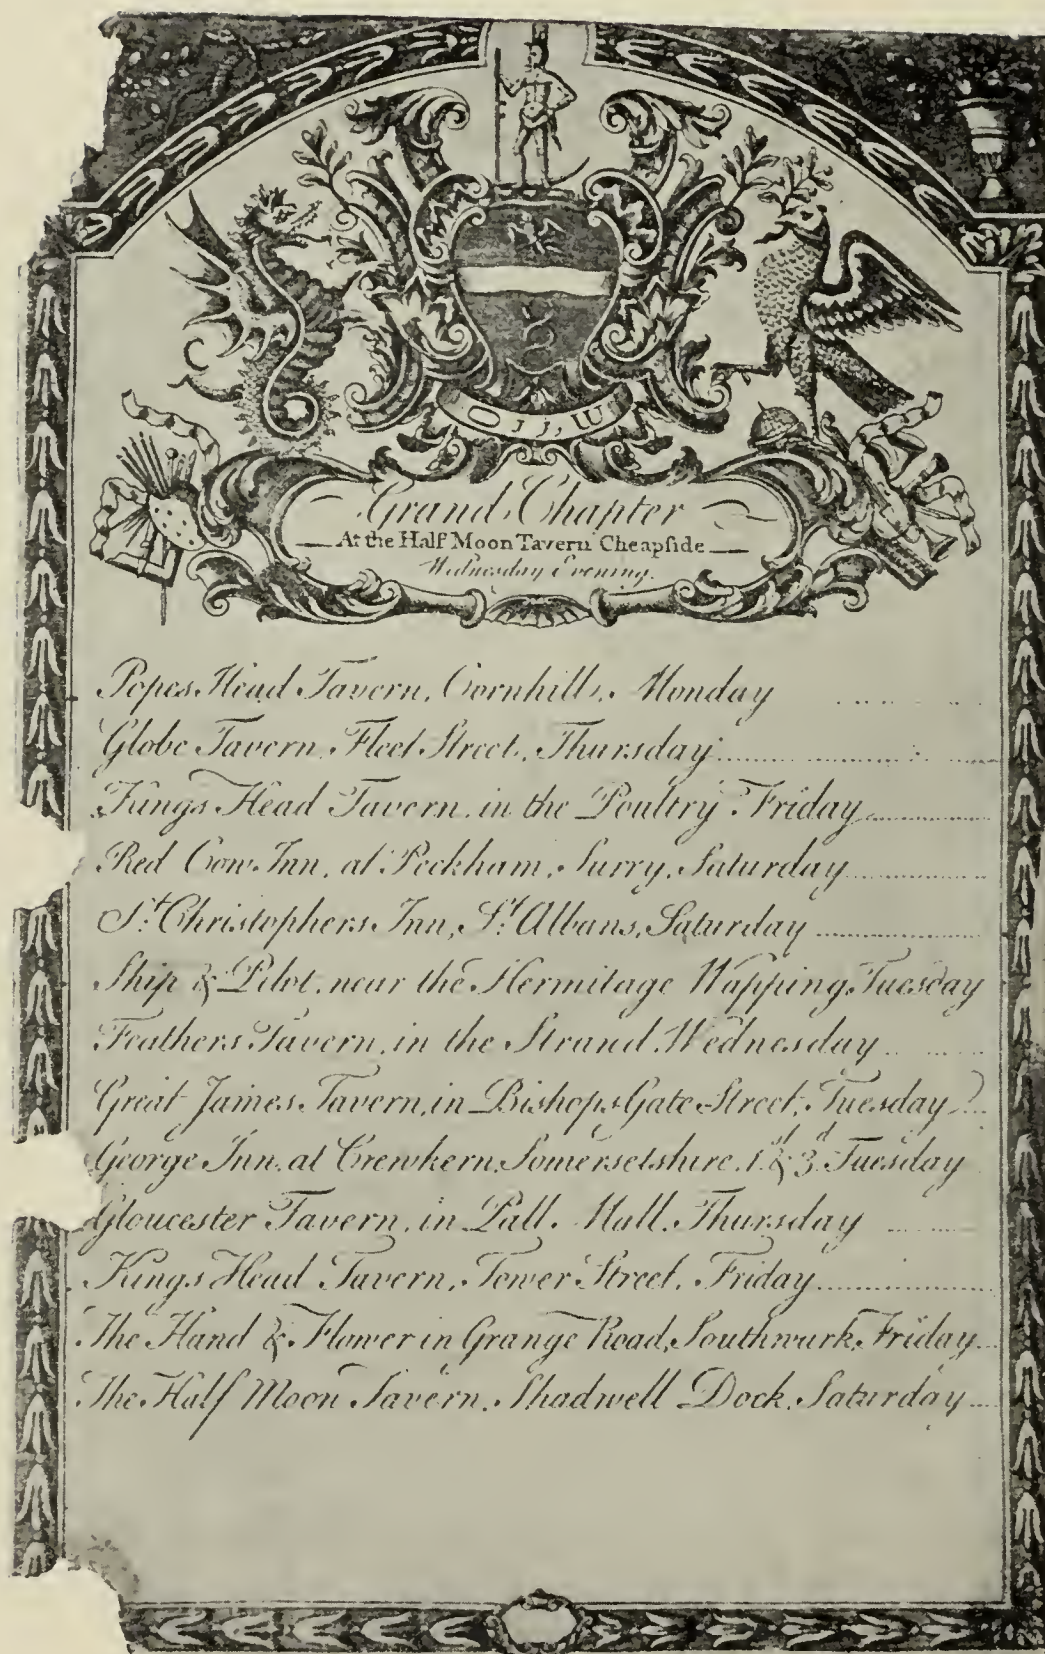 Grand Chapter
At the Half Moon Tavern Cheapſide
Wednesday Evening.
Popes Head Tavern, Cornhill, Monday
Globe Tavern Fleet Street, Thursday
Kings Head Tavern, in the Poultry Friday
Red Cow Inn, at Peckham, Surry, Saturday
St. Christophers Inn, St. Albans, Saturday
Ship & Pilot, near the Hermitage Wapping, Tuesday
Feathers Tavern, in the Strand, Wednesday
Great James Tavern, in Bishops Gate Street, Tuesday
George Inn, at Crewkern, Somersetshire, 1st & 3d Tuesday
Gloucester Tavern, in Pall Mall, Thursday
Kings Head Tavern, Tower Street, Friday
The Hand & Flower in Grange Road, Southwark, Friday
The Half Moon Tavern, Shadwell Dock, Saturday